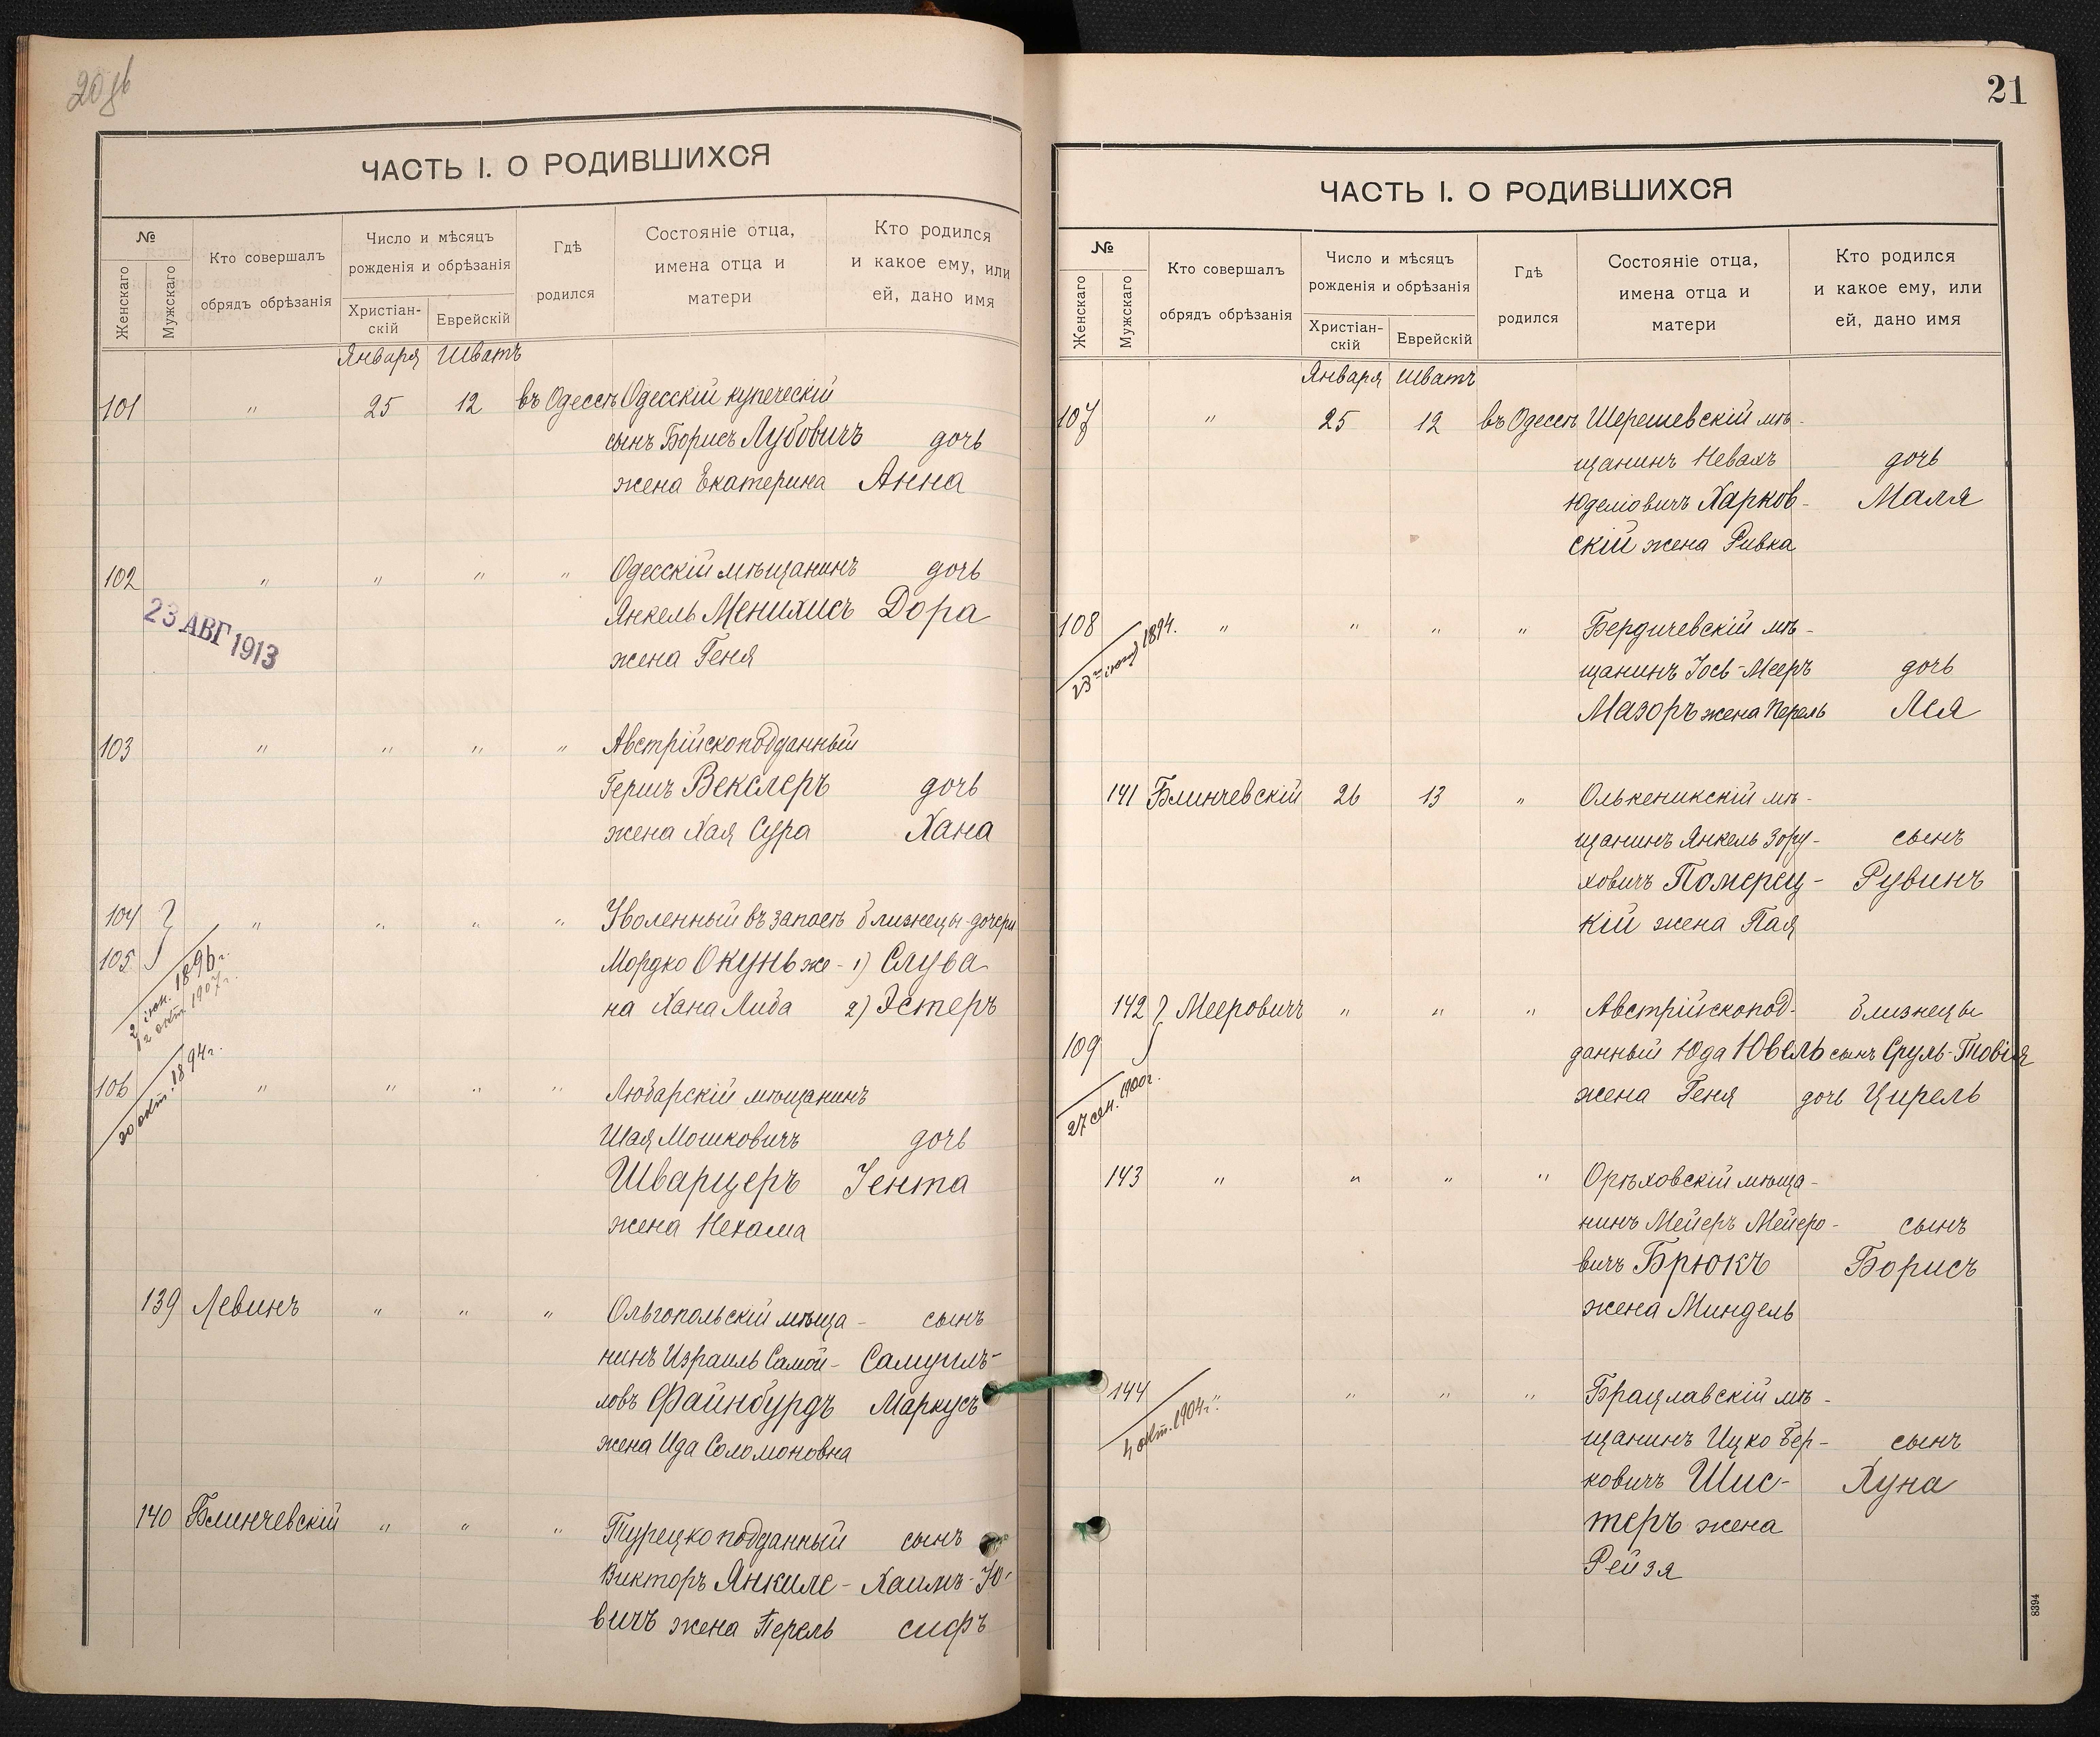 20 об
ЧАСТЬ I. О РОДИВШИХСЯ
№
Женскаго
Мужскаго
Кто совершалъ
обрядъ обрѣзанія
Число и мѣсяцъ
рожденія и обрѣзанія
Христіан-
скій
Еврейскій
Гдѣ
родился
Состояніе отца,
имена отца и
матери
Кто родился
и какое ему, или
ей, дано имя
Января Шватъ
101 " 25 12 въ Одессѣ Одесскій купеческій
сынъ Борисъ Лубовичъ дочь
жена Екатерина Анна
102 " " " " Одесскій мѣщанинъ дочь
Янкель Менихисъ Дора
жена Геня
23 АВГ 1913
103 " " " " Австрійскоподданный
Гершъ Векслеръ дочь
жена Хая Сура Хана
104 " " " " Уволенный въ запасъ близнецы-дочери
105 Мордко Окунь же- 1) Слува
на Хана Либа 2) Эстеръ
2 іюн. 1896г.
12 окт. 1907г.
106 " " " " Любарскій мѣщанинъ
Шая Мошковичъ дочь
Шварцеръ Іента
жена Нехама
20 окт. 1894г.
139 Левинъ " " " Ольгопольскій мѣща- сынъ
нинъ Израиль Самой- Самуилъ-
ловъ Файнбурдъ Маркусъ
жена Ида Соломоновна
140 Блинчевскій " " " Турецкоподданный сынъ
Викторъ Янкиле- Хаимъ-Іо-
вичъ жена Перель сифъ
21
ЧАСТЬ I. О РОДИВШИХСЯ
№
Женскаго
Мужскаго
Кто совершалъ
обрядъ обрѣзанія
Число и мѣсяцъ
рожденія и обрѣзанія
Христіан-
скій
Еврейскій
Гдѣ
родился
Состояніе отца,
имена отца и
матери
Кто родился
и какое ему, или
ей, дано имя
Января Шватъ
107 " 25 12 въ Одессѣ Шерешевскій мѣ-
щанинъ Невахъ дочь
Юделіовичъ Харков- Маля
скій жена Ривка
108 " " " " Бердичевскій мѣ-
щанинъ Іось-Мееръ дочь
Мазоръ жена Перель Лея
1894.
141 Блинчевскій 26 13 " Олькеникскій мѣ-
щанинъ Янкель Зору- сынъ
ховичъ Померец- Рувинъ
кій жена Пая
142 Мееровичъ " " " Австрійскопод- близнецы
109 данный Юда Ювель сынъ Сруль-Товія
жена Геня дочь Цирель
27 сен. 1900г.
143 " " " " Орѣховскій мѣща-
нинъ Мейеръ Мейеро- сынъ
вичъ Брюкъ Борисъ
жена Миндель
144 " " " " Брацлавскій мѣ-
щанинъ Ицко Бер- сынъ
ковичъ Шис- Хуна
теръ жена
Рейзя
4 окт. 1904г.
8394